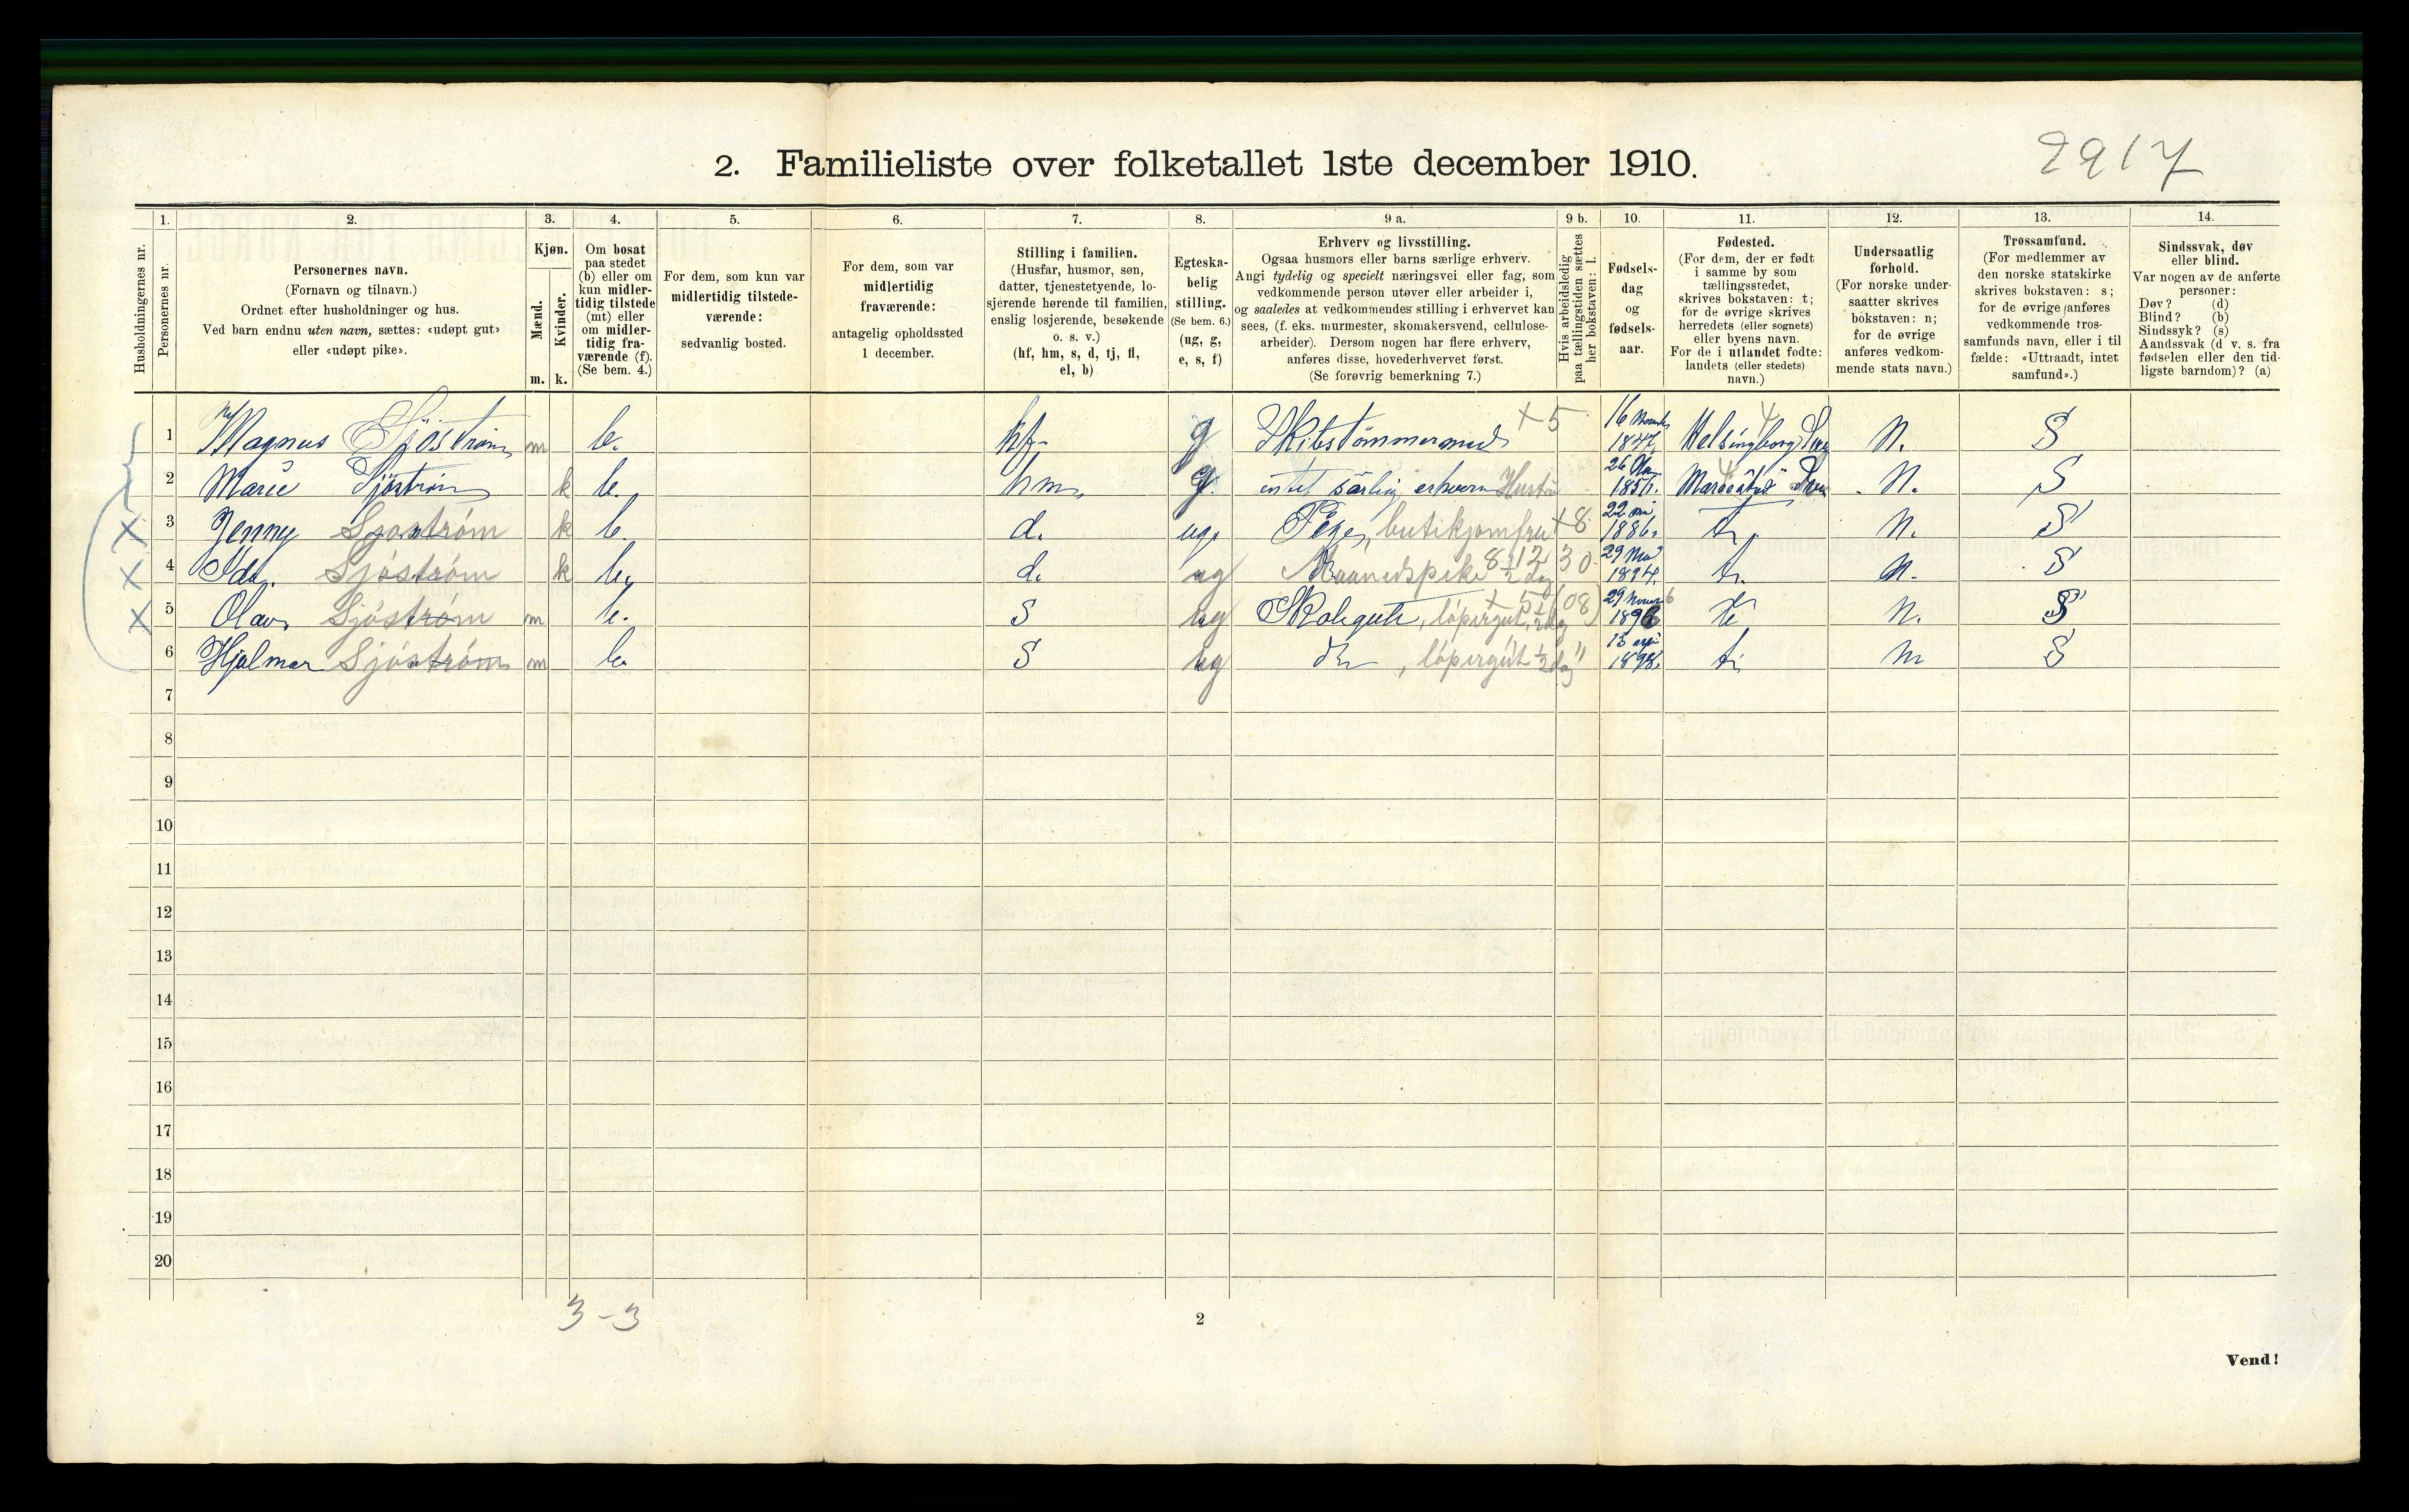 2917
2. Familieliste over folketallet 1ste december 1910.
1. 2. 3. 4. 5. 6. 7. 8. 9 a. 9 b. 10. 11. 12. 13. 14.
Husholdningernes nr.
Personernes nr.
Personernes navn.
(Fornavn og tilnavn.)
Ordnet efter husholdninger og hus.
Ved barn endnu uten navn, sættes: «udøpt gut»
eller «udøpt pike».
Kjøn.
Mænd.
Kvinder.
m. k.
Om bosat
paa stedet
(b) eller om
kun midler-
tidig tilstede
(mt) eller
om midler-
tidig fra-
værende (f).
(Se bem. 4.)
For dem, som kun var
midlertidig tilstede-
værende:
sedvanlig bosted.
For dem, som var
midlertidig
fraværende:
antagelig opholdssted
1 december.
Stilling i familien.
(Husfar, husmor, søn,
datter, tjenestetyende, lo-
sjerende hørende til familien,
enslig losjerende, besøkende
o. s. v.)
(hf, hm, s, d, tj, fl,
el, b)
Egteska-
belig
stilling.
(Se bem. 6.)
(ug, g,
e, s, f)
Erhverv og livsstilling.
Ogsaa husmors eller barns særlige erhverv.
Angi tydelig og specielt næringsvei eller fag, som
vedkommende person utøver eller arbeider i,
og saaledes at vedkommendes stilling i erhvervet kan
sees, (f. eks. murmester, skomakersvend, cellulose-
arbeider). Dersom nogen har flere erhverv,
anføres disse, hovederhvervet først.
(Se forøvrig bemerkning 7.)
Hvis arbeidsledig
paa tællingstiden sættes
her bokstaven: l.
Fødsels-
dag
og
fødsels-
aar.
Fødested.
(For dem, der er født
i samme by som
tællingsstedet,
skrives bokstaven: t;
for de øvrige skrives
herredets (eller sognets)
eller byens navn.
For de i utlandet fødte:
landets (eller stedets)
navn.)
Undersaatlig
forhold.
(For norske under-
saatter skrives
bokstaven: n;
for de øvrige
anføres vedkom-
mende stats navn.)
Trossamfund.
(For medlemmer av
den norske statskirke
skrives bokstaven: s;
for de øvrige anføres
vedkommende tros-
samfunds navn, eller i til
fælde: «Uttraadt, intet
samfund».)
Sindssvak, døv
eller blind.
Var nogen av de anførte
personer:
Døv? (d)
Blind? (b)
Sindssyk? (s)
Aandssvak (d v. s. fra
fødselen eller den tid-
ligste barndom)? (a)
1 Magnus Sjöström m b. hf. g Skibstömmermand + 5 16 1847 Helsingborg 4 N. S
2 Marie Sjöström k b. hm. g. intet särlig erhverv Hustru 26 1856. N. S
3 Jenny Sjöström k b. d. ug. butikjomfru +8 22 1886. t. N. S
X
4 Ida. Sjöström k b. d. ug Maanedspike 8-12 1/2 dag 30 29 1894. t. N. S
X
5 Olav Sjöström m b. S ug Skolegut, löpergut, 1/2 dag (08) 29 1896 t N. S
X
6 Hjalmar Sjöström m b. S ug do, löpergut 1/2 dag " 13 1898. t. N S
7
8
9
10
11
12
13
14
15
16
17
18
19
20
3-3
2
Vend!